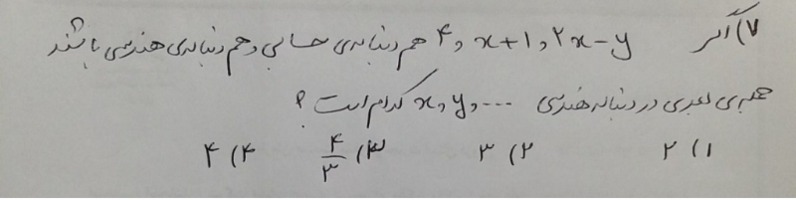 ۷) اگر ۴ و x+1 و ۲x-y هم دنباله‌ی حسابی و هم دنباله‌ی هندسی باشند
جمله‌ی بعدی در دنباله هندسی x و y و ... کدام است؟
۱) ۲ ۲) ۳ ۳) ۴/۳ ۴) ۴